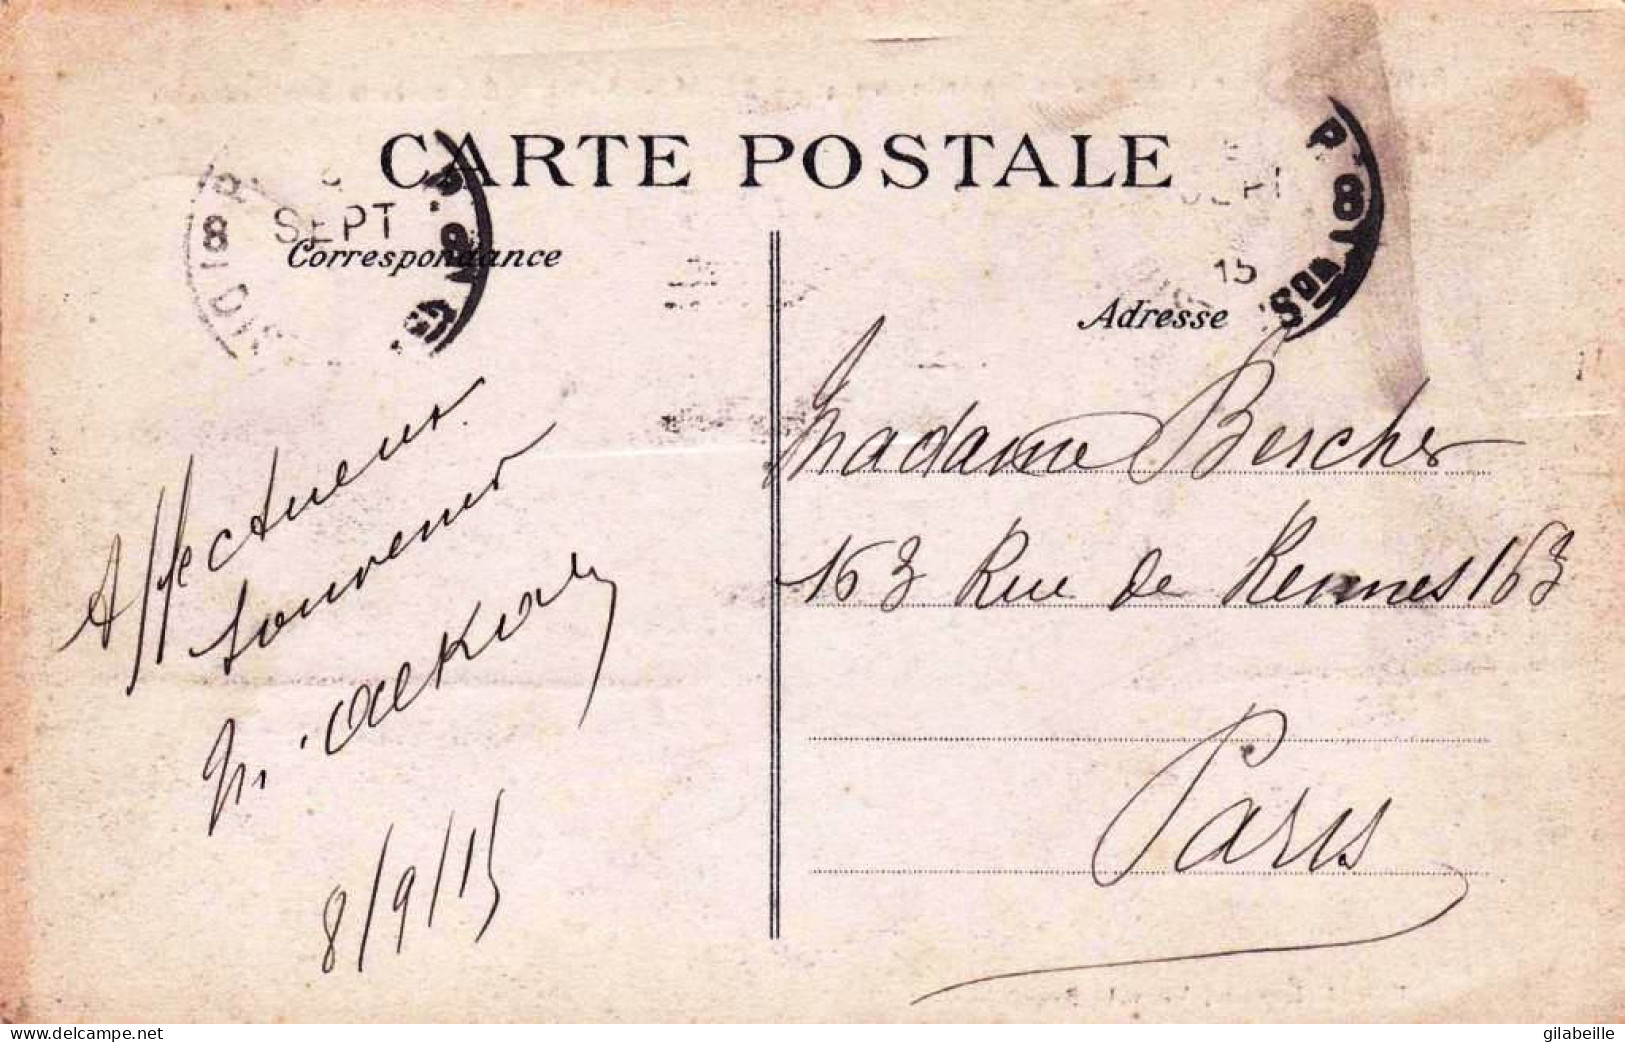 CARTE POSTALE
SEPT
8
Correspondance
Affectueux
souvenir
8/9/15
SEPT
15
P. 8
Adresse
Madame Bercher
163 Rue de Rennes 163
Paris
www.delcampe.net
gilabeille